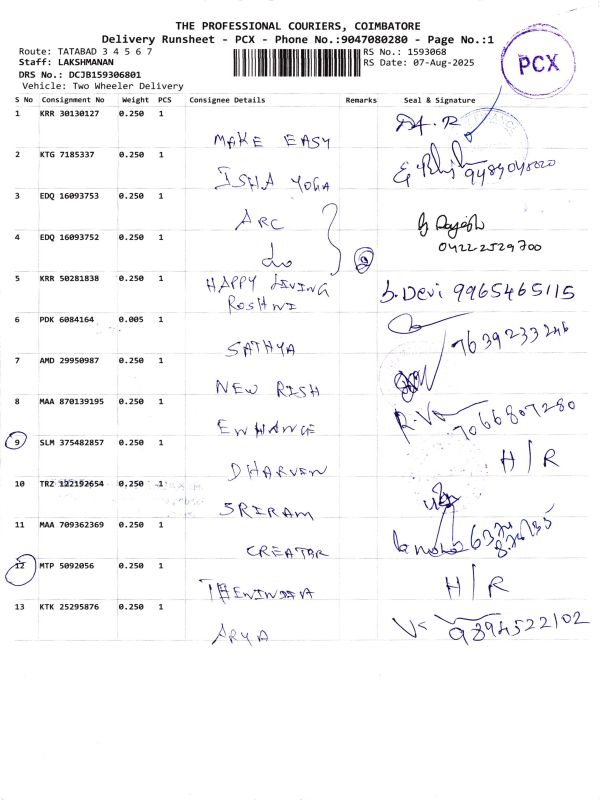 THE PROFESSIONAL COURIERS, COIMBATORE
Delivery Runsheet - PCX - Phone No.:9047080280 - Page No.:1
Route: TATABAD 3 4 5 6 7
Staff: LAKSHMANAN
DRS No.: DCJB159306801
Vehicle: Two Wheeler Delivery
RS No.: 1593068
RS Date: 07-Aug-2025
PCX
S No Consignment No Weight PCS Consignee Details Remarks Seal & Signature
1 KRR 30130127 0.250 1 MAKE EASY
2 KTG 7185337 0.250 1 ISHA YOGA
3 EDQ 16093753 0.250 1 ARC
4 EDQ 16093752 0.250 1 do 0422-2529700
5 KRR 50281838 0.250 1 HAPPY LIVING ROSHNI S.Devi 9965465115
6 PDK 6084164 0.005 1 SATHYA 7639233246
7 AMD 29950987 0.250 1 NEW RISH
8 MAA 870139195 0.250 1 ENHANCE 7066807280
9 SLM 375482857 0.250 1 DHARVEN H/R
10 TRZ 122192654 0.250 1 SRIRAM
11 MAA 709362369 0.250 1 CREATOR
12 MTP 5092056 0.250 1 H/R
13 KTK 25295876 0.250 1 ARYA 9894522102